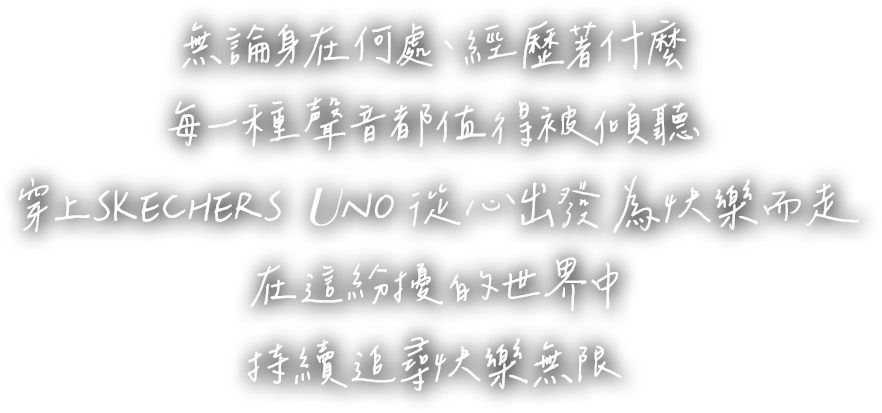 無論身在何處、經歷著什麼
每一種聲音都值得被傾聽
穿上SKECHERS UNO 從心出發 為快樂而走
在這紛擾的世界中
持續追尋快樂無限